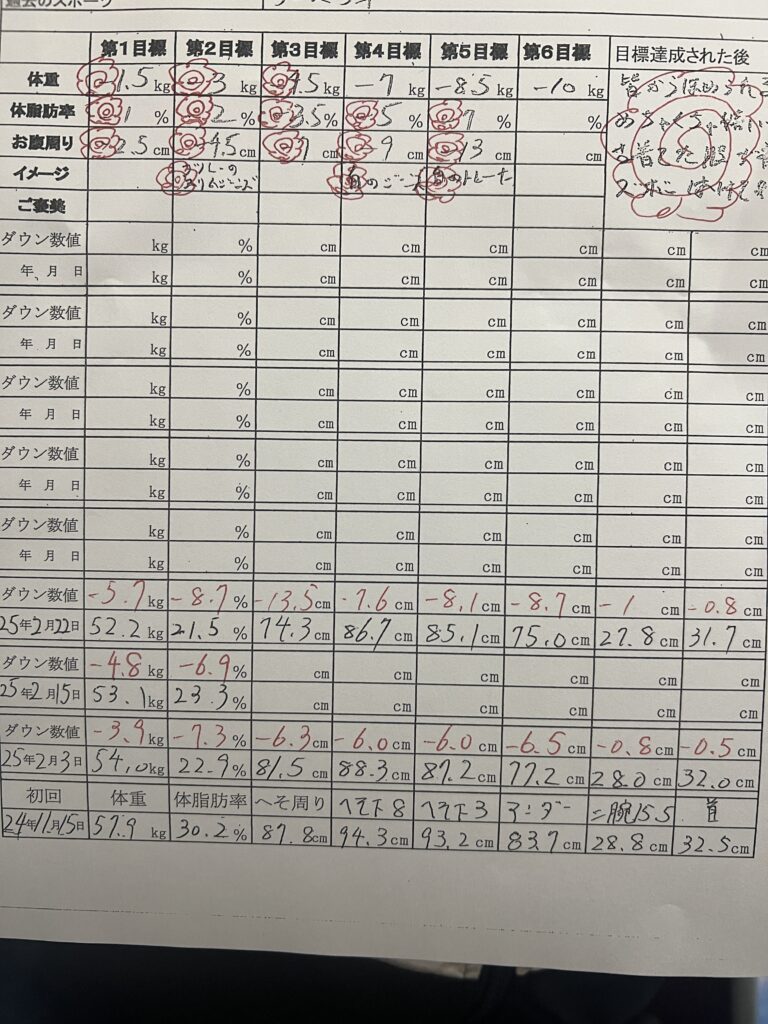 過去のスポーツ
第1目標 第2目標 第3目標 第4目標 第5目標 第6目標 目標達成された後
体重 1.5 kg 3 kg 4.5 kg -7 kg -8.5 kg -10 kg
体脂肪率 1 % 2 % -3.5 % 5 % 7 % % %
お腹周り 2.5 cm -4.5 cm cm 9 cm 13 cm cm cm
イメージ
ご褒美
ダウン数値 kg % cm cm cm cm cm cm
年、月 日 kg % cm cm cm cm cm cm
ダウン数値 kg % cm cm cm cm cm cm
年 月 日 kg % cm cm cm cm cm cm
ダウン数値 kg % cm cm cm cm cm cm
年 月 日 kg % cm cm cm cm cm cm
ダウン数値 kg % cm cm cm cm cm cm
年 月 日 kg % cm cm cm cm cm cm
ダウン数値 kg % cm cm cm cm cm cm
年 月 日 kg % cm cm cm cm cm cm
ダウン数値 -5.7 kg -8.7 % -13.5 cm -7.6 cm -8.1 cm -8.7 cm -1 cm -0.8 cm
25年2月22日 52.2 kg 21.5 % 74.3 cm 86.7 cm 85.1 cm 75.0 cm 27.8 cm 31.7 cm
ダウン数値 -4.8 kg -6.9 % cm cm cm cm cm cm
25年2月15日 53.1 kg 23.3 % cm cm cm cm cm cm
ダウン数値 -3.9 kg -7.3 % -6.3 cm -6.0 cm -6.0 cm -6.5 cm -0.8 cm -0.5 cm
25年2月3日 54.0 kg 22.9 % 81.5 cm 88.3 cm 87.2 cm 77.2 cm 28.0 cm 32.0 cm
初回 体重 体脂肪率 へそ周り へそ下8 へそ下3 アンダー 二腕15.5 首
24年11月15日 57.9 kg 30.2 % 87.8 cm 94.3 cm 93.2 cm 83.7 cm 28.8 cm 32.5 cm